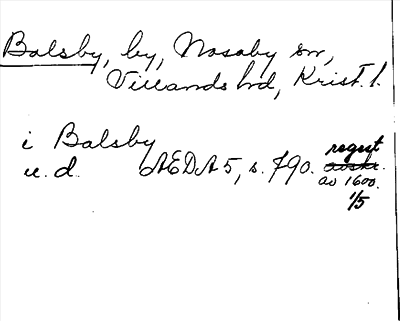 Balsby, by, Nosaby sn,
Villands hd, Krist. l.
i Balsby
u. d. AEDA 5, s. 790. regest
avskr.
av 1600.
1/5